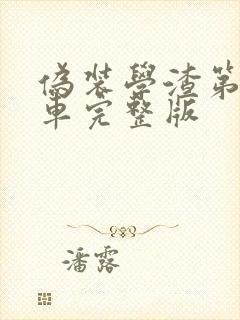 偽装學渣第
車完整版
潘露